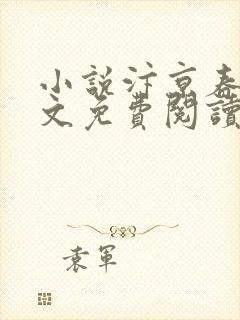 小說汴京春
文免費閱讀
袁軍